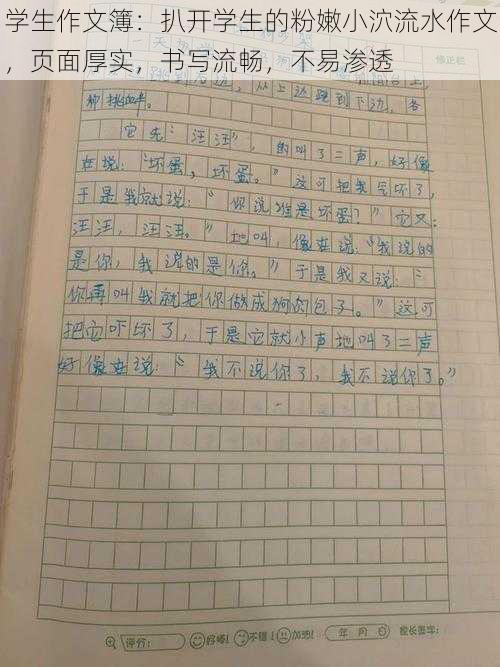 学生作文簿：
，页面厚实，书写流畅，不易渗透
修正栏
跳到右边，从上边跳到下边，各
种挑衅。
它先“汪汪”，的叫了二声，好像
在说：“坏蛋，坏蛋。”这可把我气坏了，
于是我就说：“你说谁是坏蛋？”它又：
汪汪，汪汪。”地叫，像在说：“我说的
是你，我说的是你。”于是我又说：“
你再叫我就把你做成狗肉包了。”这可
把它吓坏了，于是它就小声地叫了二声
好像在说：“我不说你了，我不说你了。”
评行： 好棒! 不错! 加油! 年 月 日 家长签字：